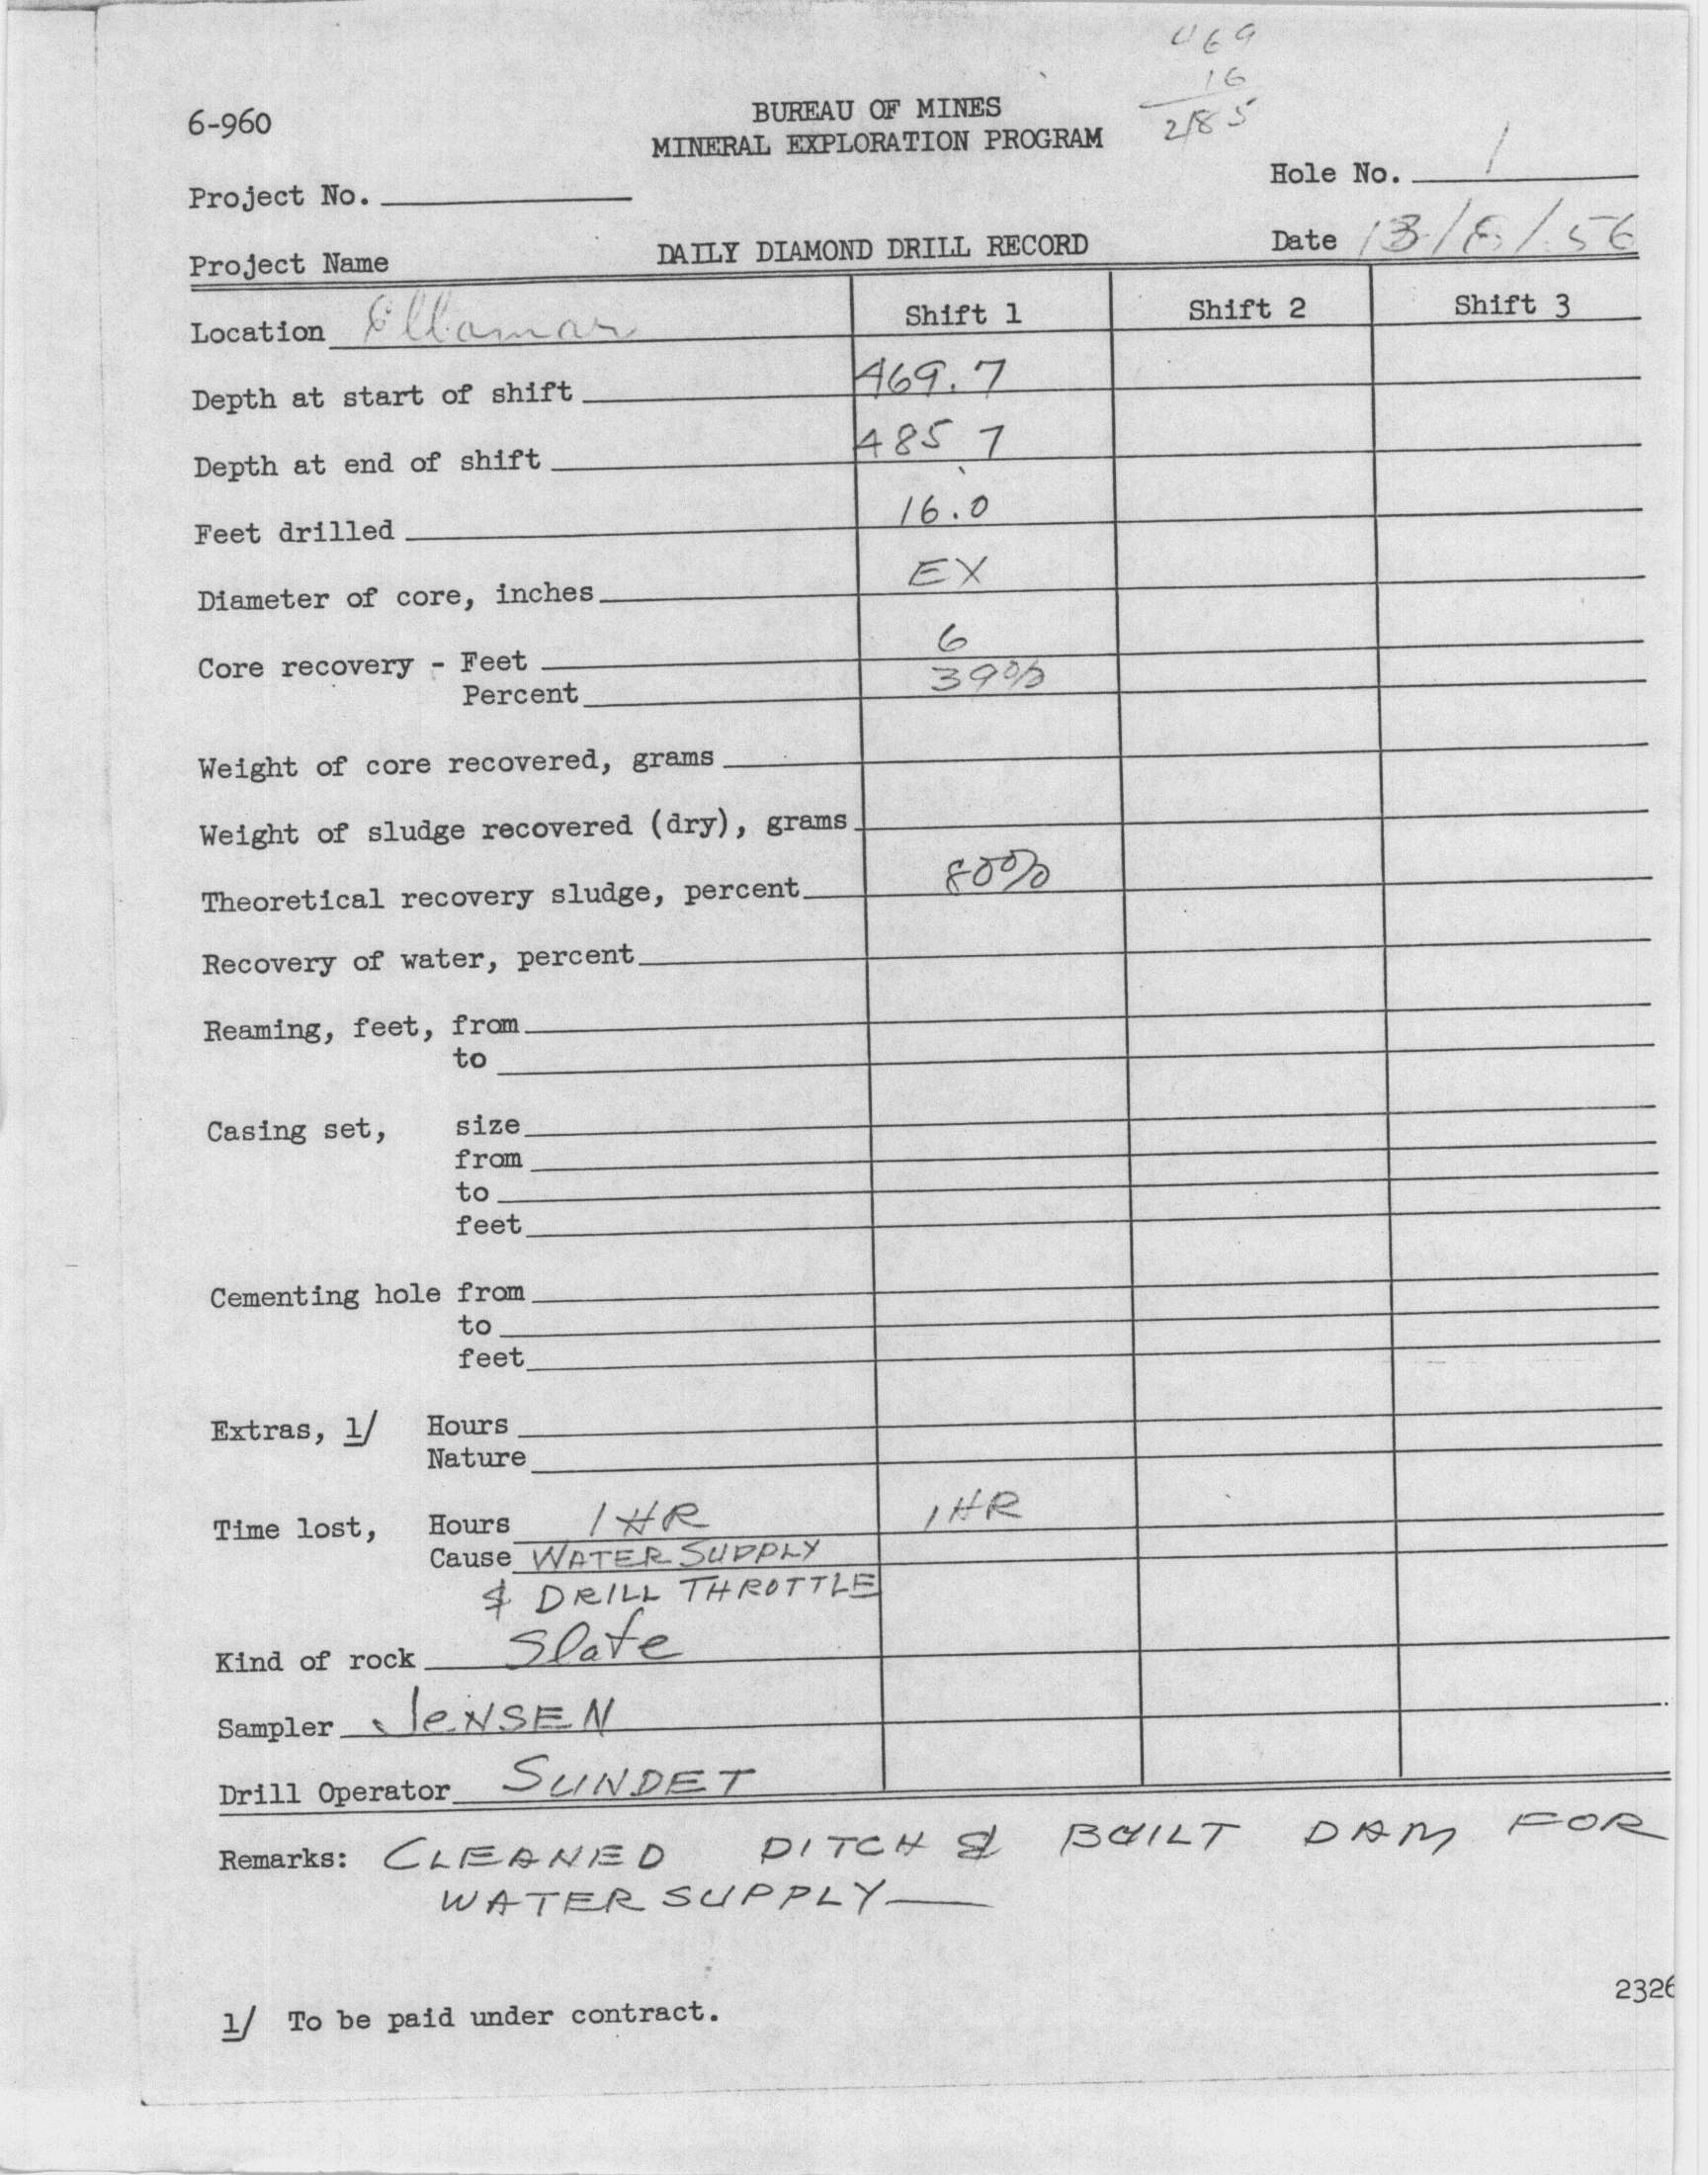 469
16
6-960
BUREAU OF MINES
485
MINERAL EXPLORATION PROGRAM
Hole No. 1
Project No.
Date
Project Name DAILY DIAMOND DRILL RECORD
Location Ellamar Shift 1 Shift 2 Shift 3
Depth at start of shift 469.7
Depth at end of shift 485.7
Feet drilled 16.0
Diameter of core, inches EX
Core recovery - Feet 6
Percent 39%
Weight of core recovered, grams
Weight of sludge recovered (dry), grams
Theoretical recovery sludge, percent 80%
Recovery of water, percent
Reaming, feet, from
to
Casing set, size
from
to
feet
Cementing hole from
to
feet
Extras, 1/ Hours
Nature
Time lost, Hours 1 HR 1 HR
Cause WATER SUPPLY
& DRILL THROTTLE
Kind of rock Slate
Sampler JENSEN
Drill Operator SUNDET
Remarks: CLEANED DITCH & BUILT DAM FOR
WATER SUPPLY
2326
1/ To be paid under contract.